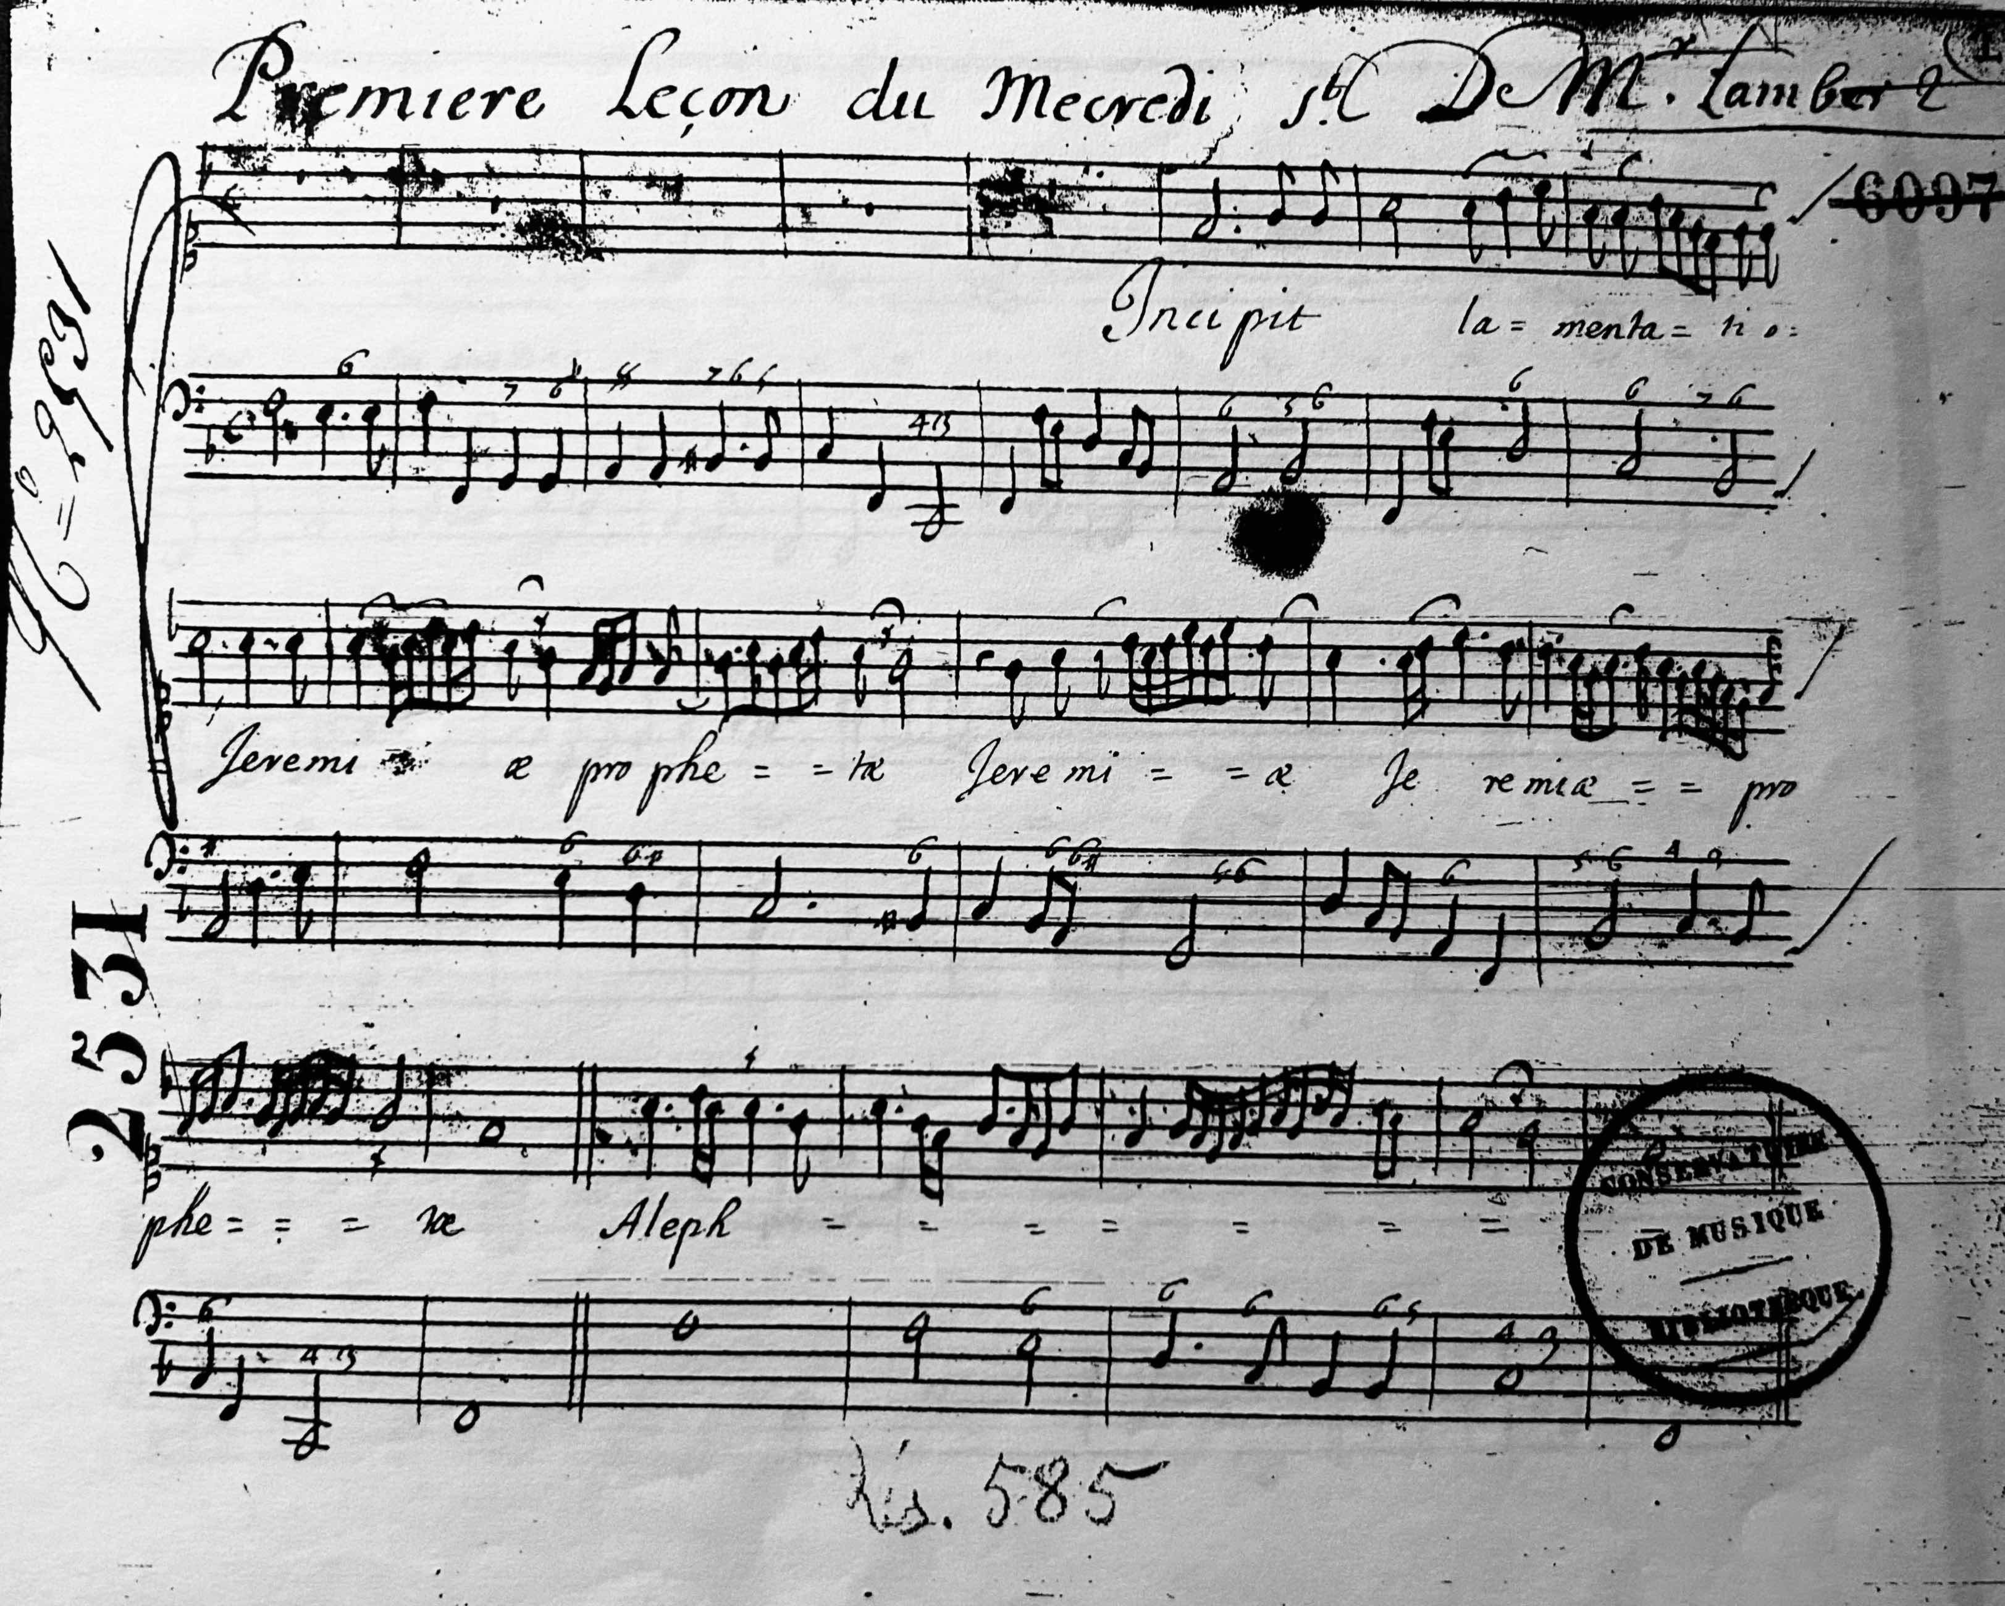 Premiere Leçon du Mecredi st. De Mr. Lambert
1
6097
Incipit la = menta = tio =
N° = 2531
Jeremi æ prophe = = tæ Jeremi = = æ Je remiæ = = pro
2531
phe = = = tæ Aleph = = = = = = =
CONSERVATOIRE
DE MUSIQUE
BIBLIOTHÈQUE
Rés. 585